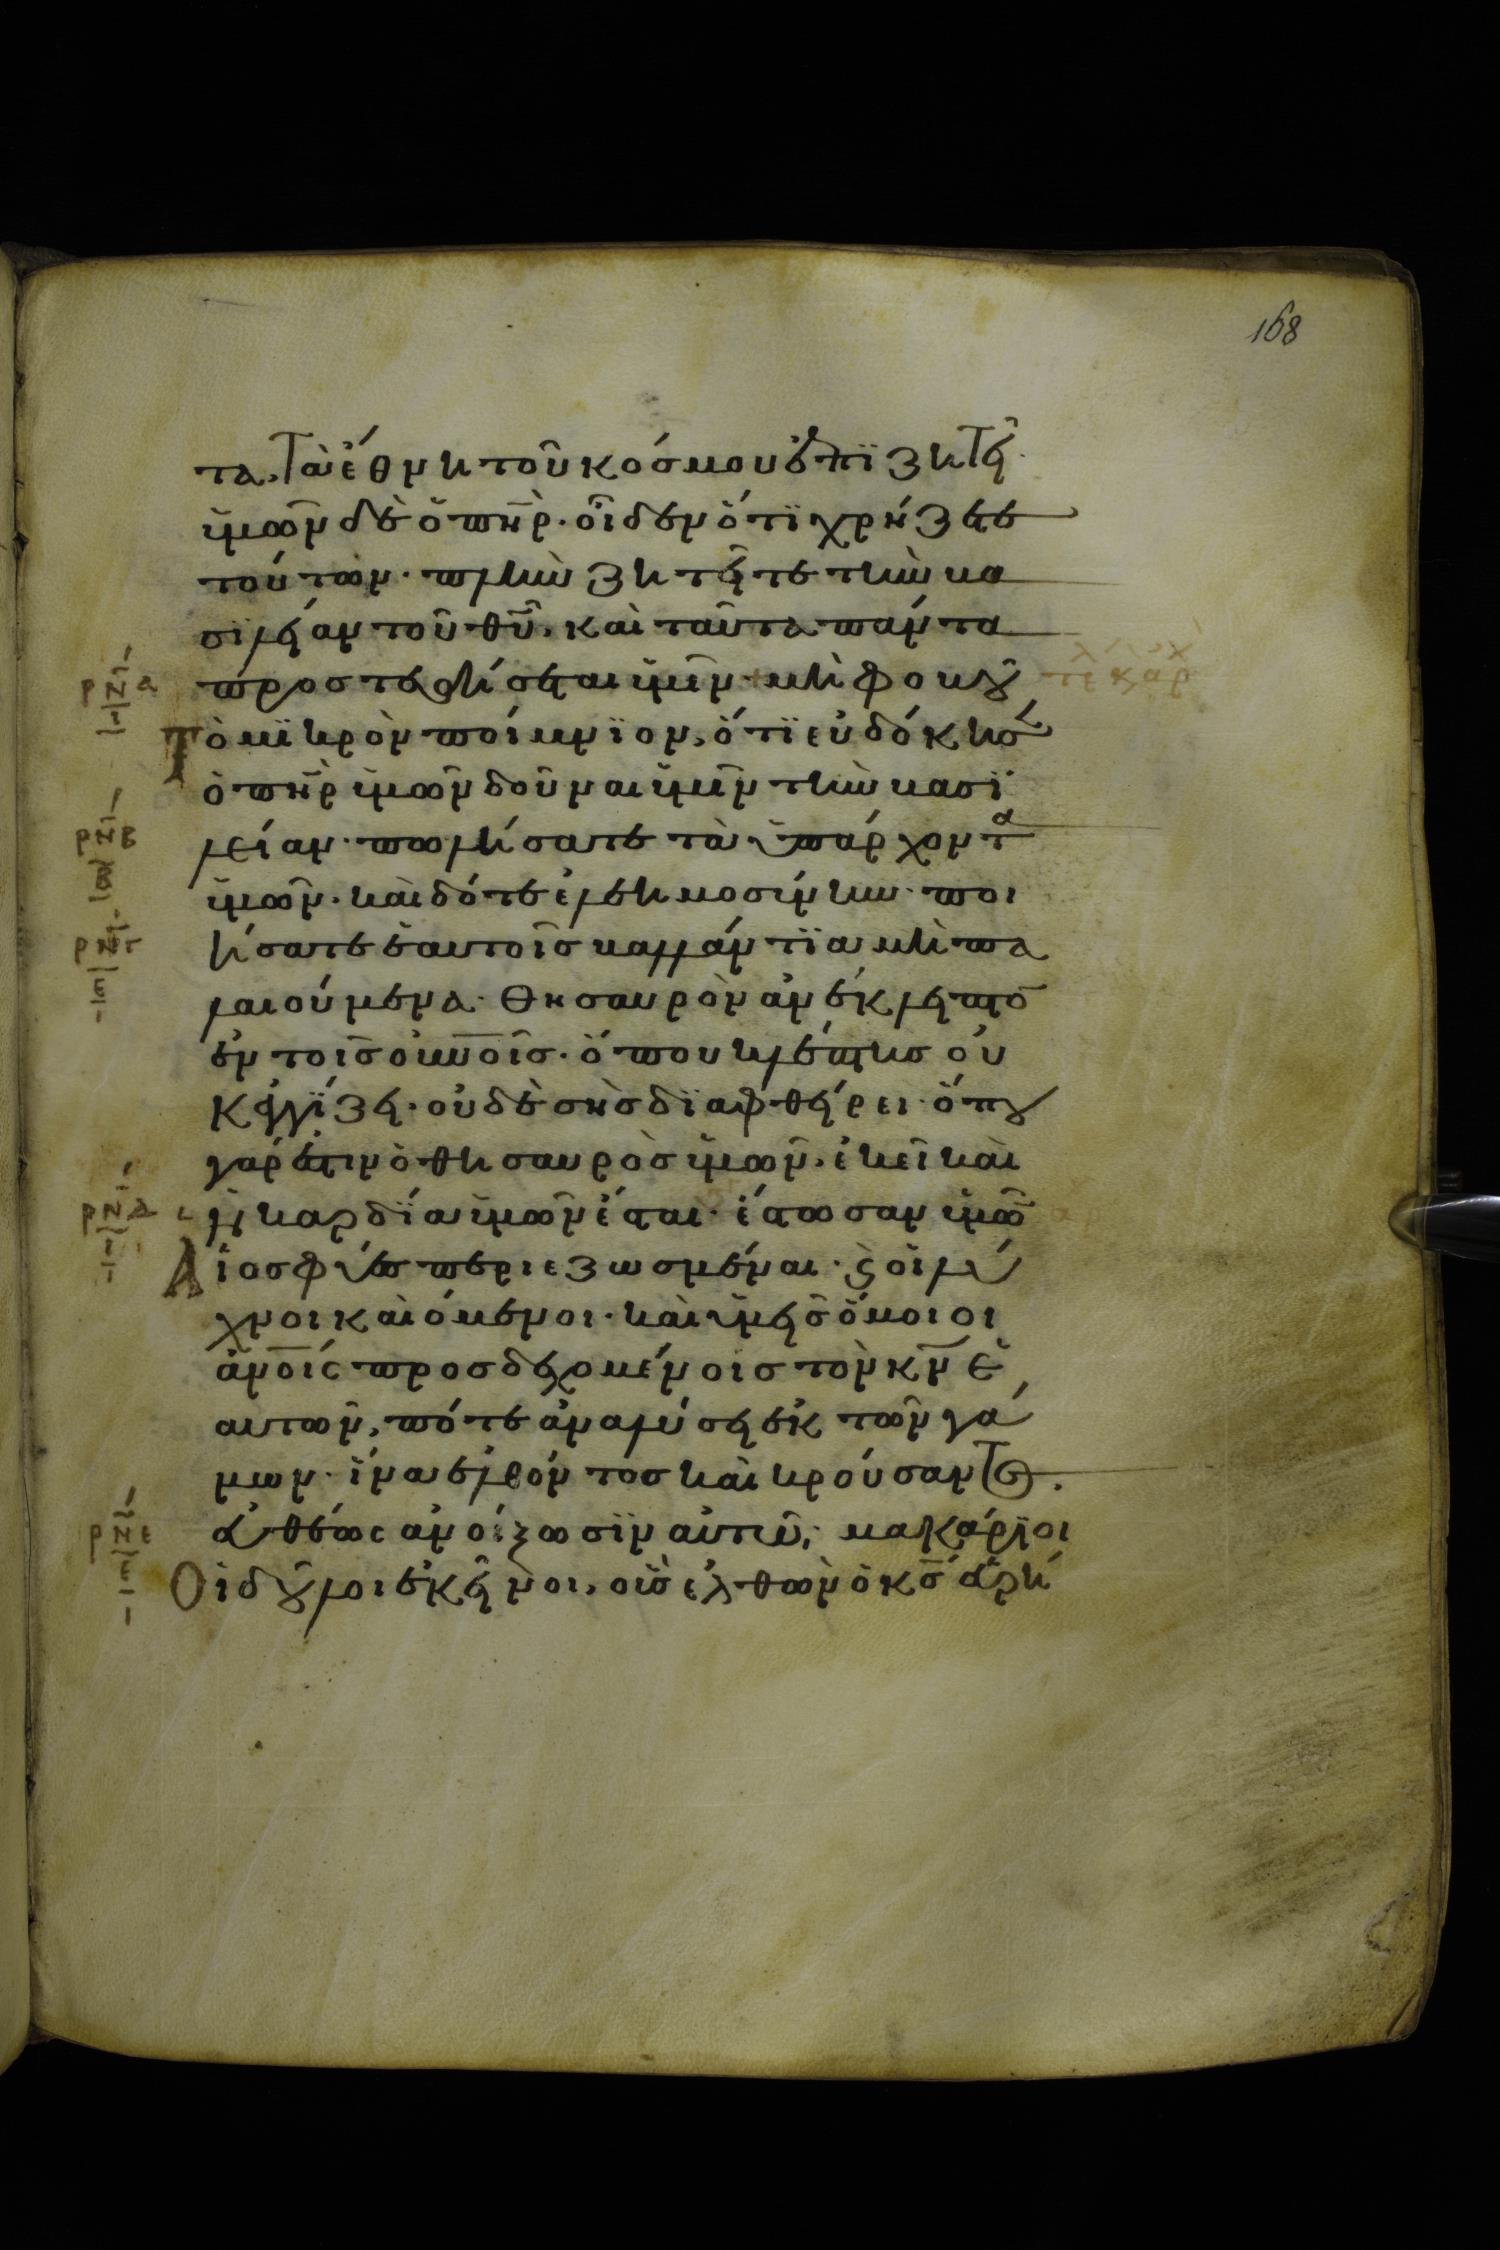 168
τα, Τὰ ἔθνη τοῦ κόσμου ἐπϊζητεῖ·
ὑμῶν δὲ ὁ π̅η̅ρ̅· οἶδεν ὅτϊ χρήζετε
τούτων· πλὴν ζητεῖτε τὴν βα
σϊλείαν τοῦ θ̅υ̅, καὶ ταῦτα πάντα
προστεθήσεται ὑμῖν· μὴ φοβοῦ
Τὸ μϊκρὸν ποίμνϊον, ὅτϊ εὐδόκησεν
ὁ π̅η̅ρ̅ ὑμῶν δοῦναι ὑμῖν τὴν βασϊ
λείαν· πωλήσατε τὰ ὑπάρχοντα
ὑμῶν· καὶ δότε ἐλεημοσύνην· ποι
ήσατε ἑαυτοῖς βαλλάντϊα μὴ πα
λαιούμενα· Θησαυρὸν ἀνέκλειπτο̅
ἐν τοῖς ο̅υ̅ν̅οῖς· ὅπου κλέπτης οὐ
κ ἐγγίζει· οὐδὲ σὴς δϊαφθείρει· ὅπου
γάρ ἐστιν ὁ θησαυρὸς ὑμῶν, ἐκεῖ καὶ
ἡ καρδία ὑμῶν ἔσται· ἔστωσαν ὑμῶ̅
Αἱ ὀσφύες περιεζωσμέναι· ϗ οἱ λύ
χνοι καιόμενοι· καὶ ὑμεῖς ὅμοιοι
ἀ̅ν̅ο̅ι̅ς̅ προσδεχομένοις τὸν κ̅ν̅ ἑ
αυτῶν, πότε ἀναλύσει ἐκ τῶν γά
μων· ἵνα ἐλθόντος καὶ κρούσαντος·
εὐθέως ἀνοίξωσϊν αὐτῶ, μακάρϊοι
Οἱ δοῦλοι ἐκεῖνοι, οὓς ἐλθὼν ὁ κ̅ς̅ εὑρή
ρνα
ρνβ
ρνγ
ρνδ
ρνε